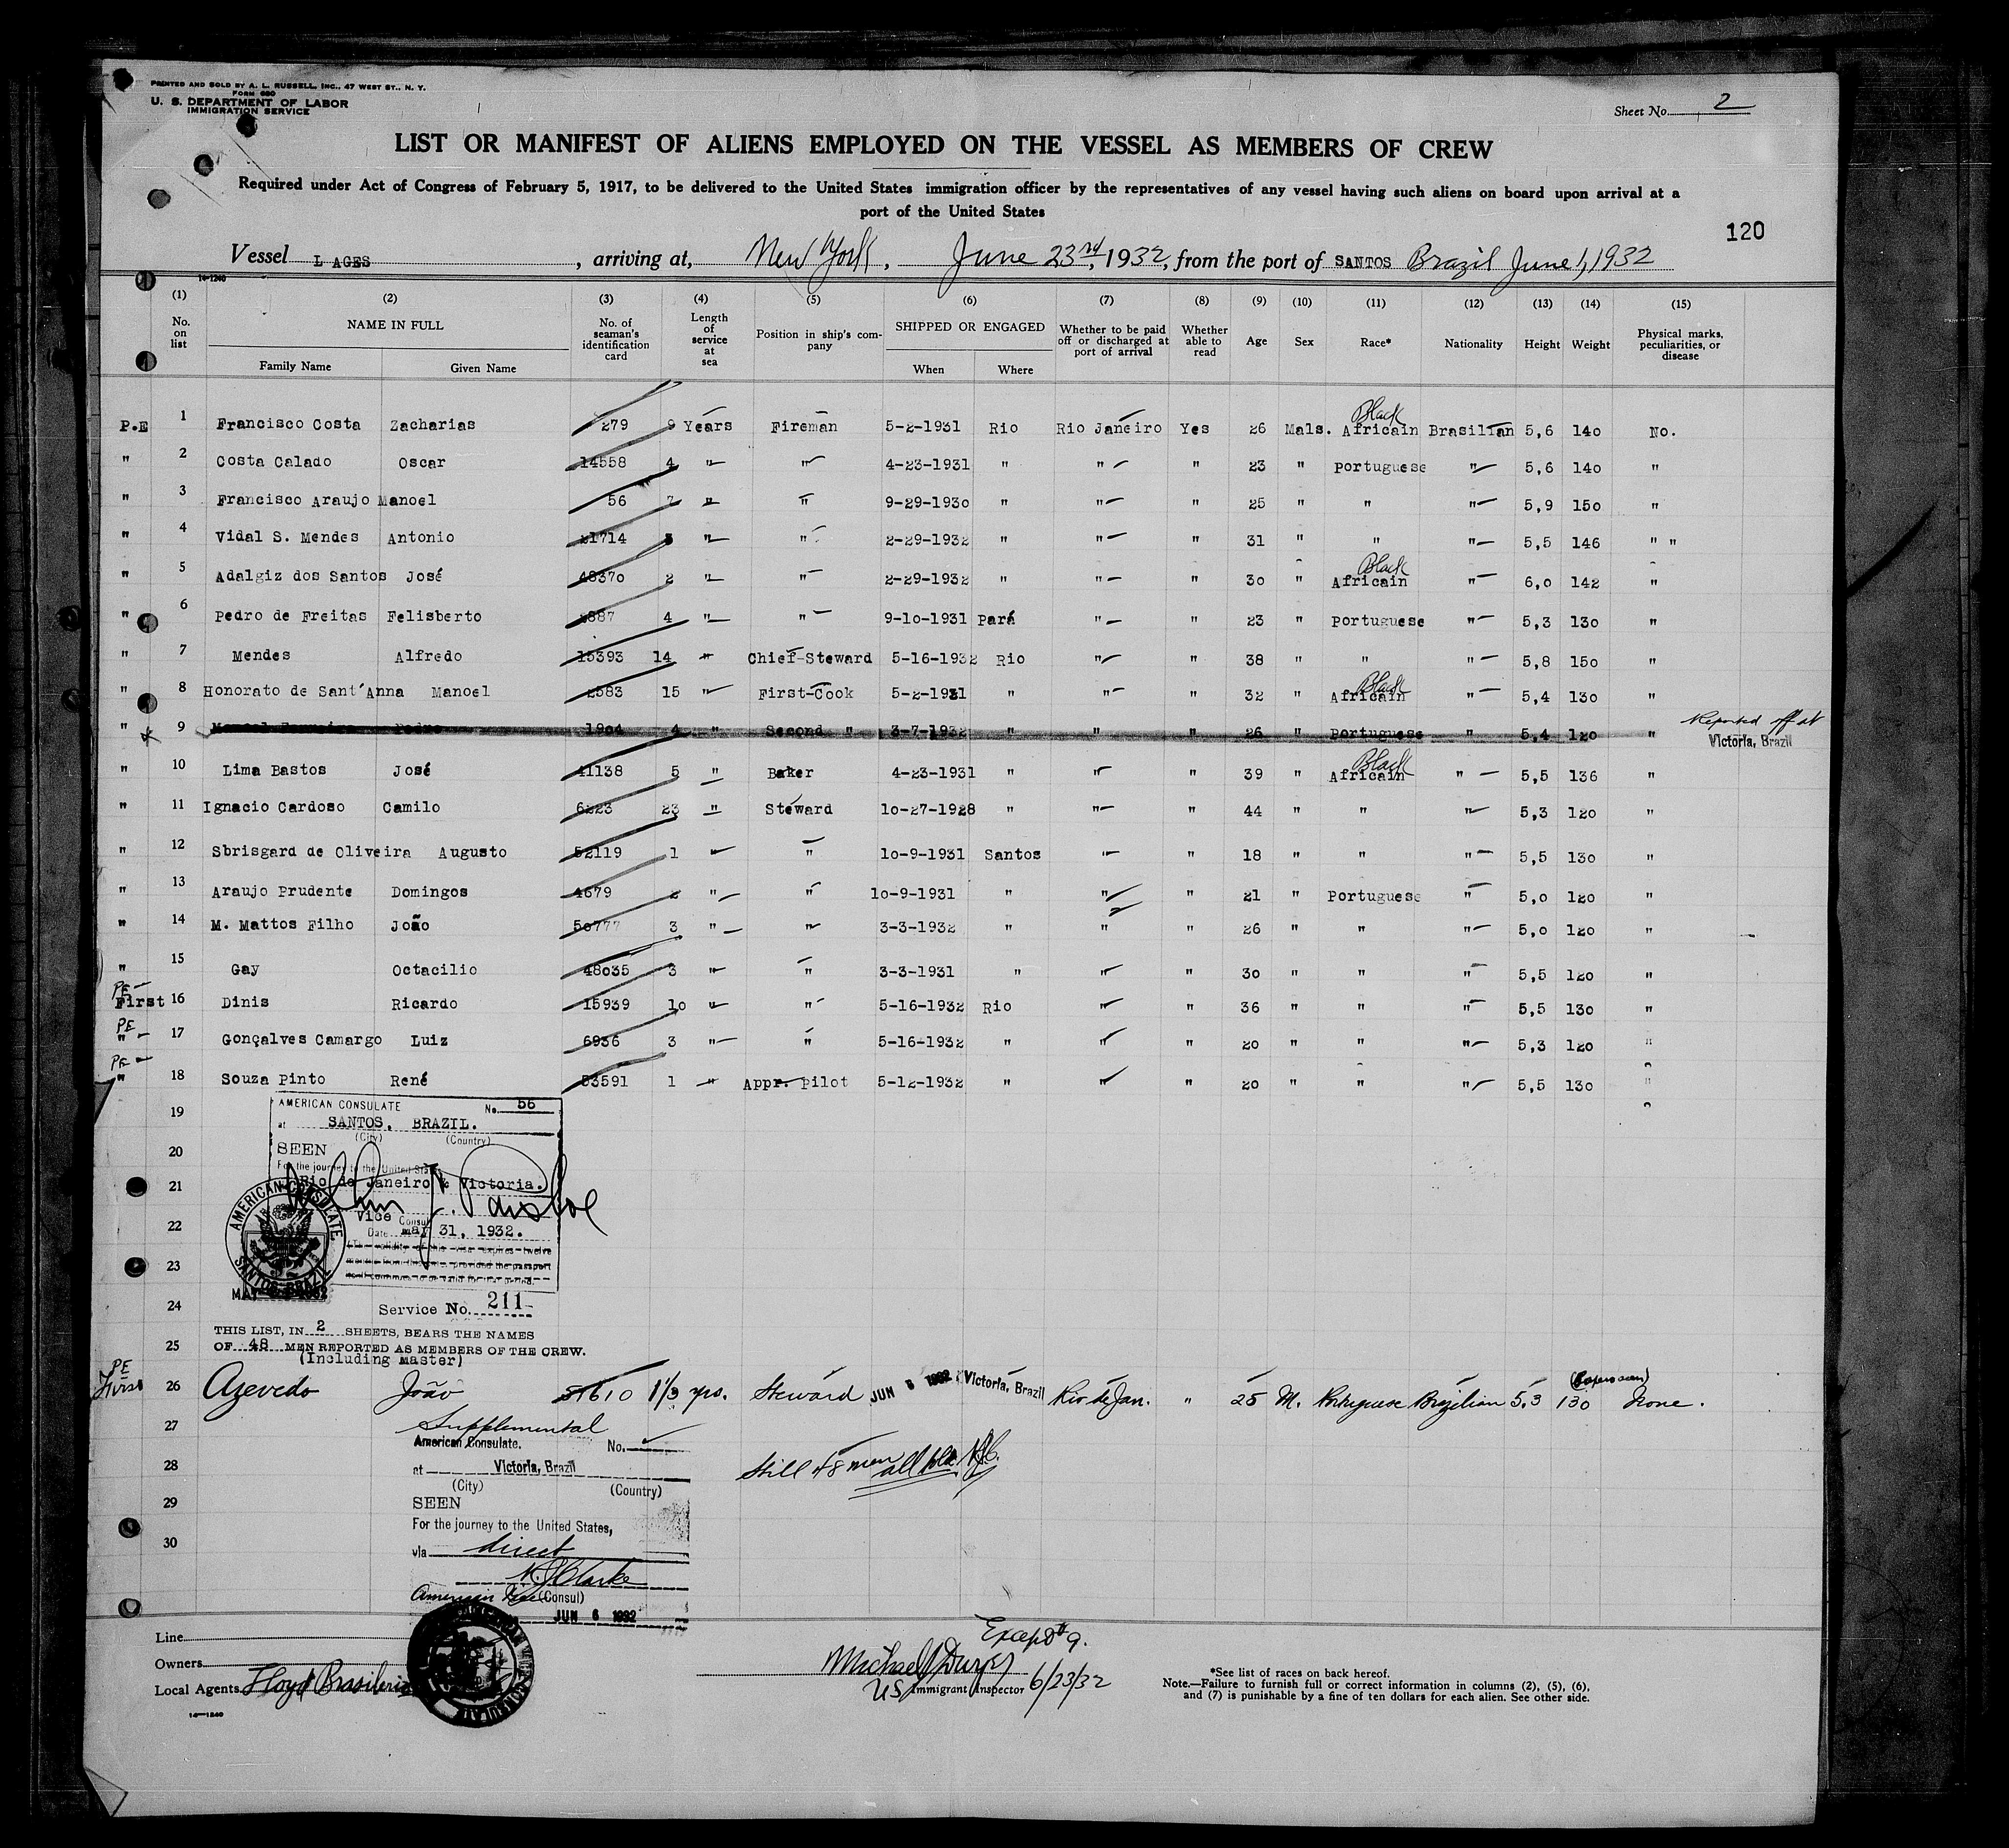 PRINTED AND SOLD BY A. L. RUSSELL, INC., 47 WEST ST., N. Y.
FORM 680
U. S. DEPARTMENT OF LABOR
IMMIGRATION SERVICE
Sheet No. 2
LIST OR MANIFEST OF ALIENS EMPLOYED ON THE VESSEL AS MEMBERS OF CREW
Required under Act of Congress of February 5, 1917, to be delivered to the United States immigration officer by the representatives of any vessel having such aliens on board upon arrival at a
port of the United States
120
Vessel LAGES, arriving at, New York, June 23rd, 1932, from the port of SANTOS Brazil June 1, 1932
14-1240
(1) (2) (3) (4) (5) (6) (7) (8) (9) (10) (11) (12) (13) (14) (15)
No. on list NAME IN FULL Family Name Given Name No. of seaman's identification card Length of service at sea Position in ship's company SHIPPED OR ENGAGED When Where Whether to be paid off or discharged at port of arrival Whether able to read Age Sex Race* Nationality Height Weight Physical marks, peculiarities, or disease
P.E 1 Francisco Costa Zacharias 279 9 Years Fireman 5-2-1931 Rio Rio Janeiro Yes 26 Mals. Black Africain Brasilian 5,6 140 No.
" 2 Costa Calado Oscar 14558 4 " " 4-23-1931 " " " 23 " Portuguese " 5,6 140 "
" 3 Francisco Araujo Manoel 56 7 " " 9-29-1930 " " " 25 " " " 5,9 150 "
" 4 Vidal S. Mendes Antonio 21714 " " 2-29-1932 " " " 31 " " " 5,5 146 " "
" 5 Adalgiz dos Santos José 48370 2 " " 2-29-1932 " " " 30 " Black Africain " 6,0 142 "
" 6 Pedro de Freitas Felisberto 2887 4 " " 9-10-1931 Pará " " 23 " Portuguese " 5,3 130 "
" 7 Mendes Alfredo 15393 14 " Chief-Steward 5-16-1932 Rio " " 38 " " " 5,8 150 "
" 8 Honorato de Sant'Anna Manoel 2583 15 " First-Cook 5-2-1931 " " " 32 " Black Africain " 5,4 130 "
" 9 Pedro 1904 4 " Second " 3-7-1932 " " " 26 " Portuguese " 5,4 120 " Reported off at Victoria, Brazil
" 10 Lima Bastos José 41138 5 " Baker 4-23-1931 " " " 39 " Black Africain " 5,5 136 "
" 11 Ignacio Cardoso Camilo 6223 23 " Steward 10-27-1928 " " " 44 " " " 5,3 120 "
" 12 Sbrisgard de Oliveira Augusto 52119 1 " " 10-9-1931 Santos " " 18 " " " 5,5 130 "
" 13 Araujo Prudente Domingos 4679 2 " " 10-9-1931 " " " 21 " Portuguese " 5,0 120 "
" 14 M. Mattos Filho João 50777 3 " " 3-3-1932 " " " 26 " " " 5,0 120 "
" 15 Gay Octacilio 48035 3 " " 3-3-1931 " " " 30 " " " 5,5 120 "
PE First 16 Dinis Ricardo 15939 10 " " 5-16-1932 Rio " " 36 " " " 5,5 130 "
PE " 17 Gonçalves Camargo Luiz 6936 3 " " 5-16-1932 " " " 20 " " " 5,3 120 "
PE " 18 Souza Pinto René 53591 1 " Appr. Pilot 5-12-1932 " " " 20 " " " 5,5 130 "
19
AMERICAN CONSULATE No. 56
at SANTOS, BRAZIL.
(City) (Country)
20
SEEN
For the journey to the United States
21
Rio de Janeiro & Victoria.
22
Vice Consul
Date May 31, 1932.
AMERICAN CONSULATE, SANTOS, BRAZIL
23
24
Service No. 211
THIS LIST, IN 2 SHEETS, BEARS THE NAMES
25
OF 48 MEN REPORTED AS MEMBERS OF THE CREW.
(Including master)
PE First 26 Azevedo João 51610 1 1/3 yrs. Steward JUN 6 1932 Victoria, Brazil Rio de Jan. " 25 M. Portuguese Brazilian 5.3 130 None.
27
Supplemental
American Consulate. No.
28
at Victoria, Brazil
(City) (Country)
Still 48 men
29
SEEN
For the journey to the United States,
30
via direct
American Vice (Consul)
JUN 6 1932
Line
Owners
Local Agents Lloyd Brasileiro
Except #9.
US Immigrant Inspector 6/23/32
*See list of races on back hereof.
Note.—Failure to furnish full or correct information in columns (2), (5), (6),
and (7) is punishable by a fine of ten dollars for each alien. See other side.
14-1240